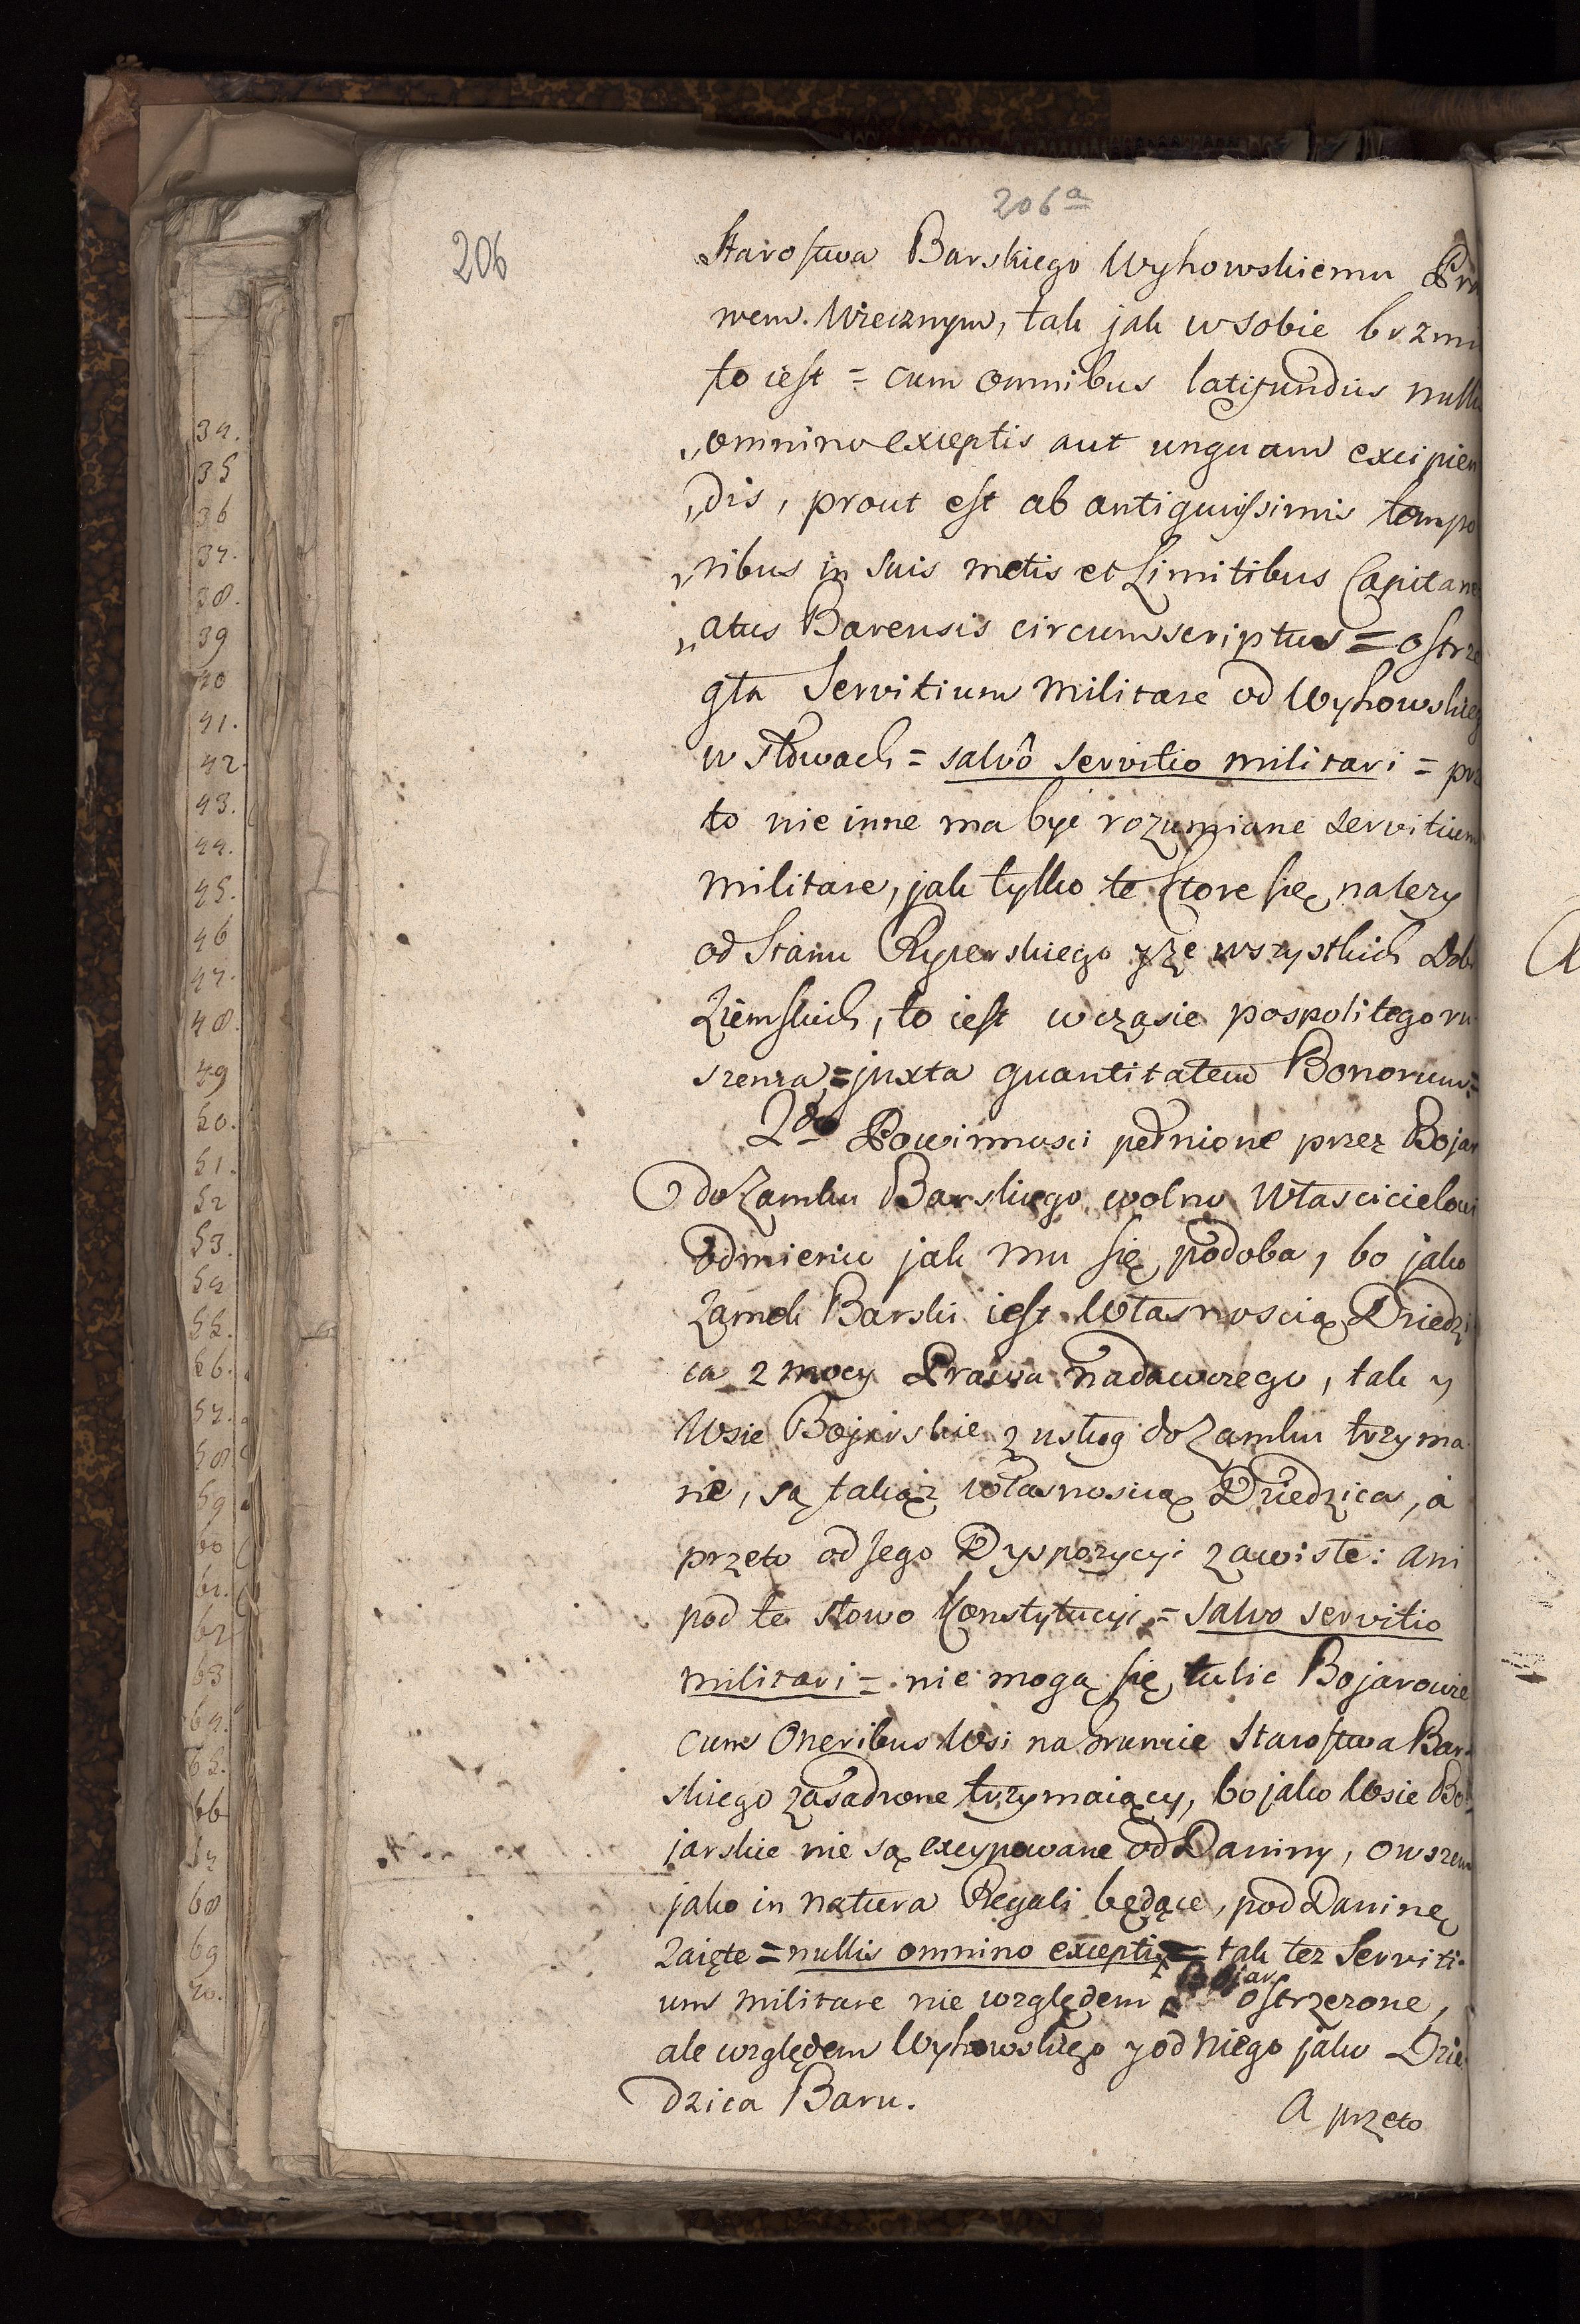 206ª
206
Starostwa Barskiego Wyhowskiemu Pra
wem Wiecznym, tak jak w sobie brzmi
to iest = cum omnibus latifundiis nulli
„omnino exceptis aut unquam excipien
„dis, prout est ab antiquissimis tempo
„ribus in Suis metis et Limitibus Capitane
„atus Barensis circumscriptus = ostrze
gła Servitium Militare od Wyhowskieg
w słowach = salvô servitio militari = prze
to nie inne ma byc rozumiane Servitium
Militare, jak tylko te ktore się nalezy
od Stanu Rycerskiego y ze wszystkich Dobr
Ziemskich, to iest w czasie pospolitego ru
szenia = juxta quantitatem Bonorum =
2do Powinnosci pełnione przez Bojar
do Zamku Barskiego wolno Włascicielowi
odmienic jak mu się podoba, bo jako
Zamek Barski iest Własnoscią Dziedzi
ca z mocy Prawa nadawczego, tak y
Wsie Bojarskie z usług do Zamku trzyma
ne, są takąż własnoscią Dziedzica, a
przeto od jego Dyspozycyi zawisłe: ani
pod te słowo Konstytucyi = salvo servitio
militari = nie mogą się tulic Bojarowie
cum Oneribus Wsi na gruncie Starostwa Bar
skiego zasadzone trzymaiący, bo jako Wsie Bo
jarskie nie są excypowane od Daniny, owszem
jako in natura Regali będące, pod Daninę
zaięte = nullis omnino exceptis = tak tez Serviti
um militare nie względem Bojar ostrzezone,
ale względem Wyhowskiego y od niego jako Dzie
dzica Baru.
A przeto
34.
35
36
37.
38.
39
40
41.
42.
43.
44.
45.
46
47.
48.
49
50.
51.
52
53.
54
55.
56.
57.
58
59
60
61.
62
63
64.
65.
66
67
68
69
70.